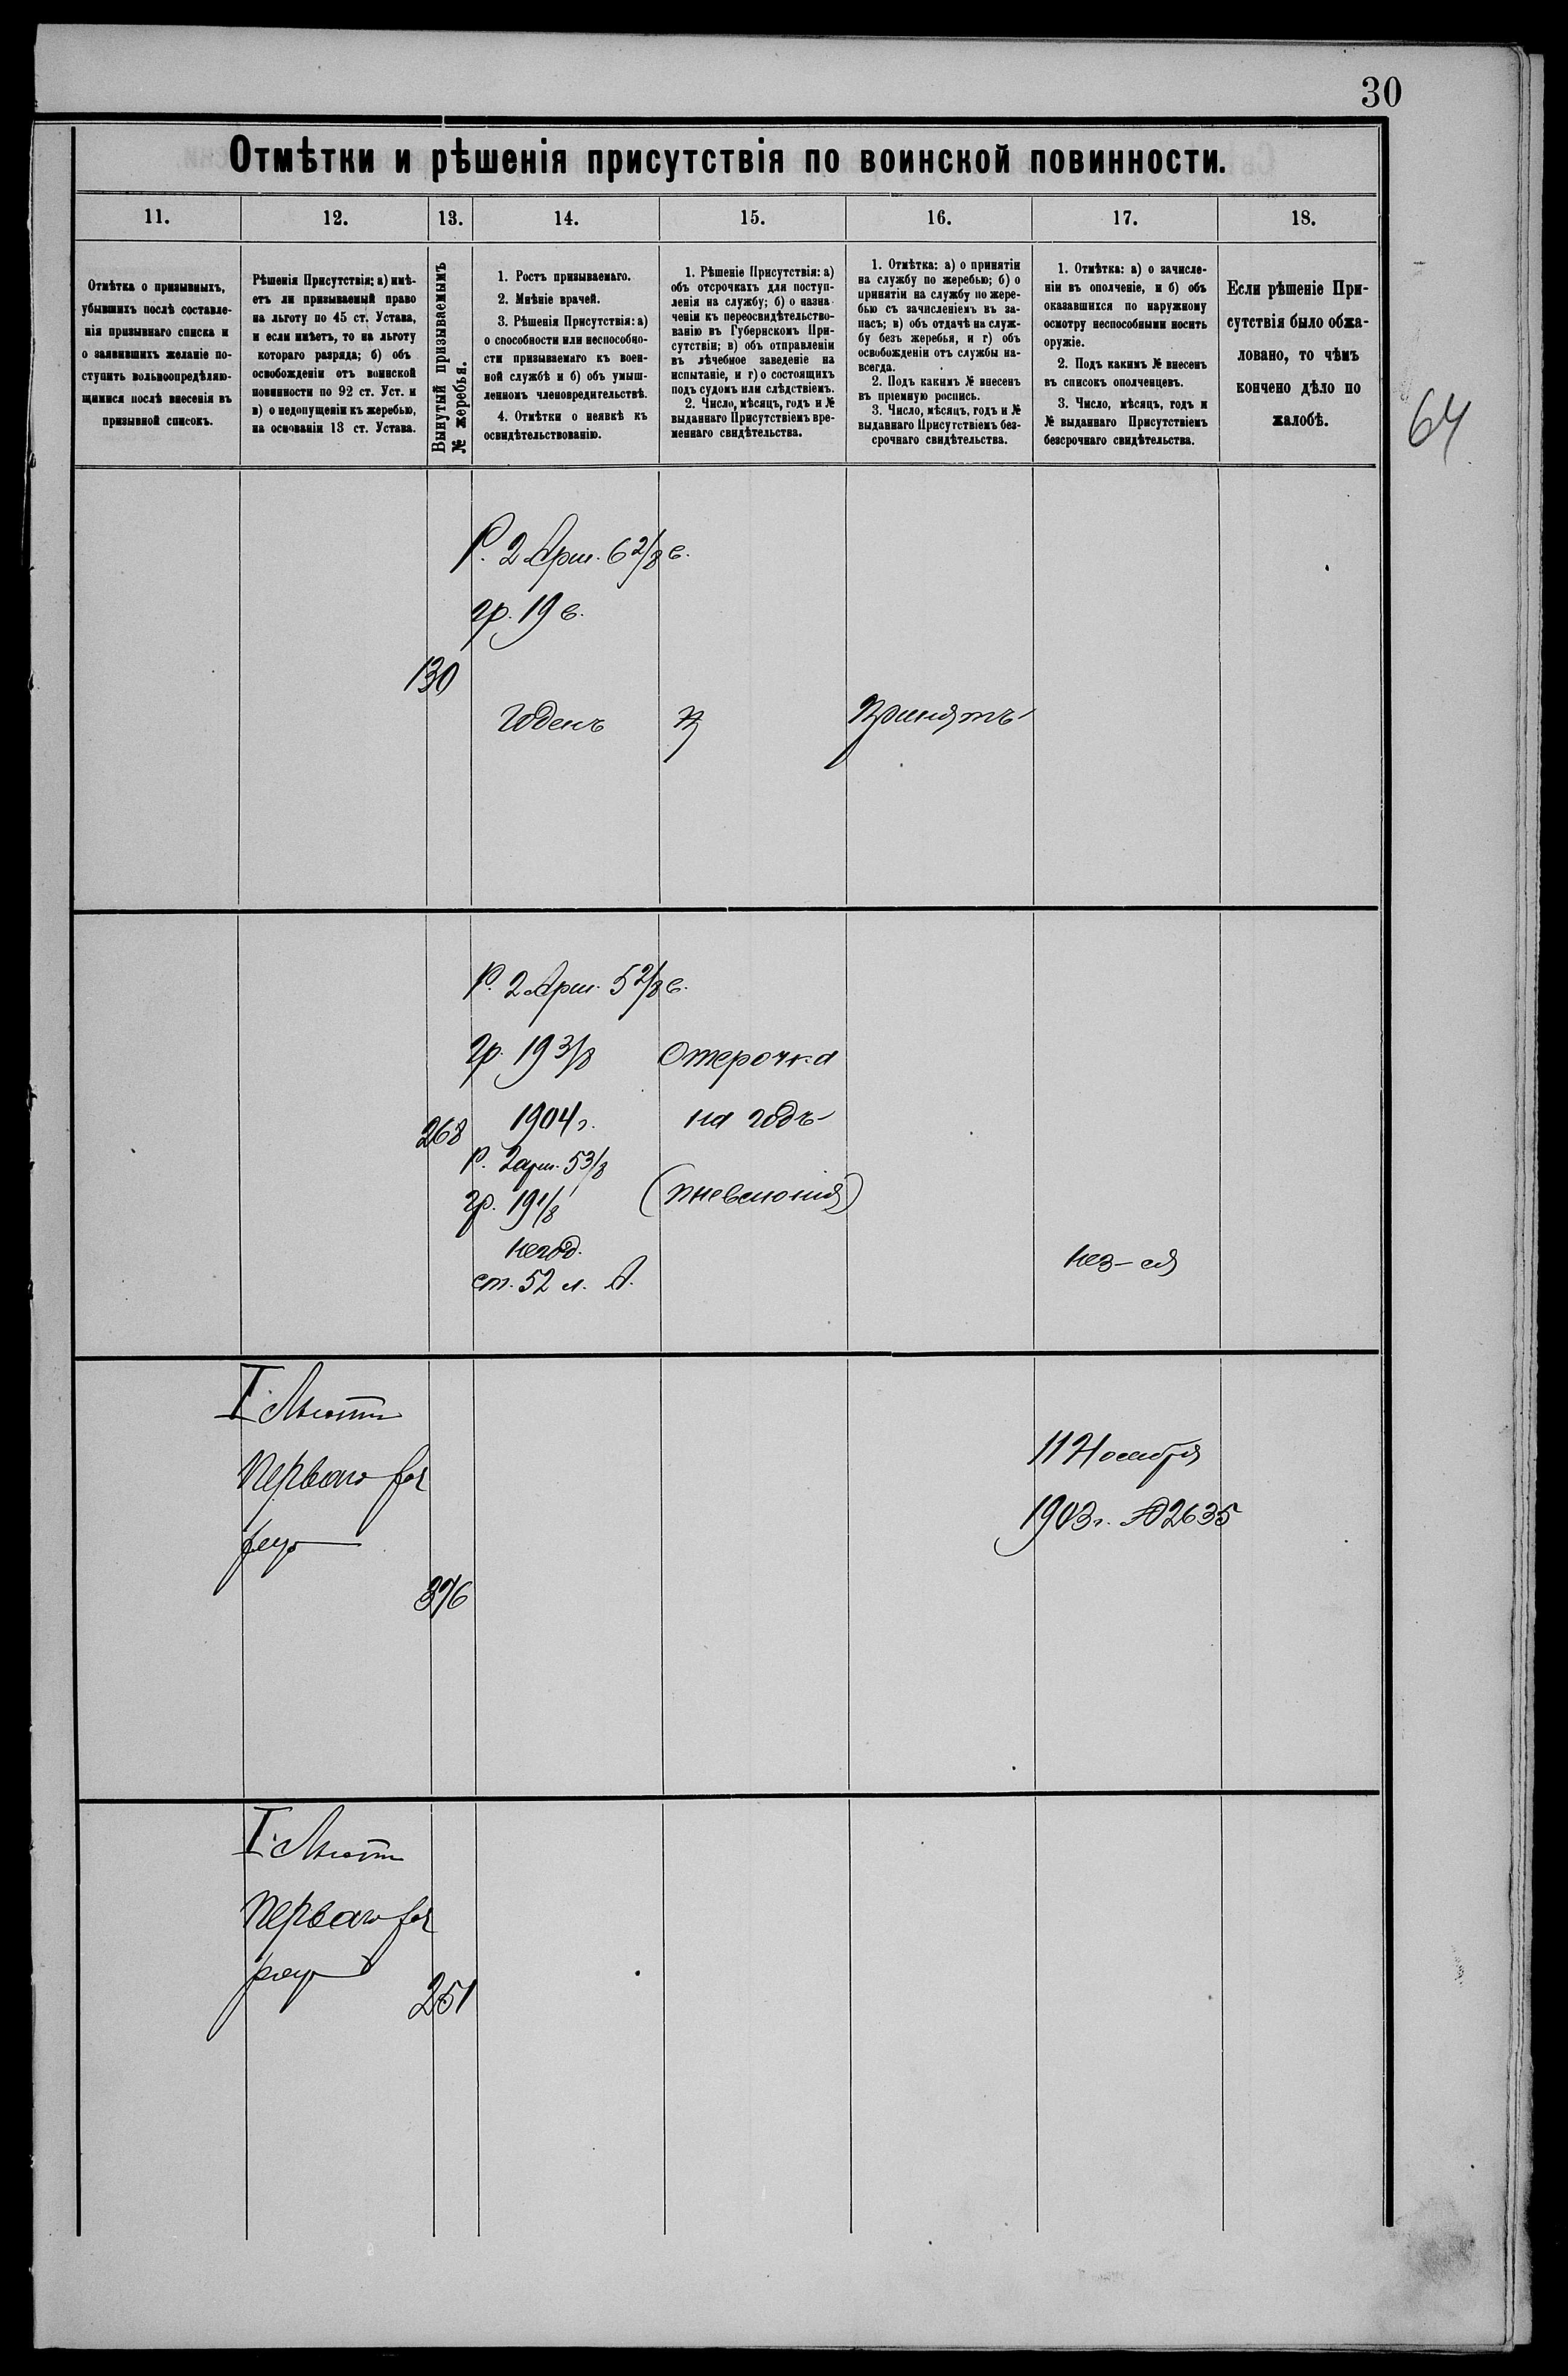 30
Отмѣтки и рѣшенія присутствія по воинской повинности.
11.
12.
13.
14.
15.
16.
17.
18.
Отмѣтка о призывныхъ,
убывшихъ послѣ составле-
нія призывнаго списка и
о заявившихъ желаніе по-
ступить вольноопредѣляю-
щимися послѣ внесенія въ
призывной списокъ.
Рѣшенія Присутствія: а) имѣ-
етъ ли призываемый право
на льготу по 45 ст. Устава,
и если имѣетъ, то на льготу
котораго разряда; б) объ
освобожденіи отъ воинской
повинности по 92 ст. Уст. и
в) о недопущеніи къ жеребью,
на основаніи 13 ст. Устава.
Вынутый призываемымъ
№ жеребья.
1. Ростъ призываемаго.
2. Мнѣніе врачей.
3. Рѣшенія Присутствія: а)
о способности или неспособно-
сти призываемаго къ воен-
ной службѣ и б) объ умыш-
ленномъ членовредительствѣ.
4. Отмѣтки о неявкѣ къ
освидѣтельствованію.
1. Рѣшеніе Присутствія: а)
объ отсрочкахъ для поступ-
ленія на службу; б) о назна-
ченіи къ переосвидѣтельство-
ванію въ Губернскомъ При-
сутствіи; в) объ отправленіи
въ лѣчебное заведеніе на
испытаніе, и г) о состоящихъ
подъ судомъ или слѣдствіемъ.
2. Число, мѣсяцъ, годъ и №
выданнаго Присутствіемъ вре-
меннаго свидѣтельства.
1. Отмѣтка: а) о принятіи
на службу по жеребью; б) о
принятіи на службу по жере-
бью съ зачисленіемъ въ за-
пасъ; в) объ отдачѣ на служ-
бу безъ жеребья, и г) объ
освобожденіи отъ службы на-
всегда.
2. Подъ какимъ № внесенъ
въ пріемную роспись.
3. Число, мѣсяцъ, годъ и №
выданнаго Присутствіемъ без-
срочнаго свидѣтельства.
1. Отмѣтка: а) о зачисле-
ніи въ ополченіе, и б) объ
оказавшихся по наружному
осмотру неспособными носить
оружіе.
2. Подъ какимъ № внесенъ
въ списокъ ополченцевъ.
3. Число, мѣсяцъ, годъ и
№ выданнаго Присутствіемъ
безсрочнаго свидѣтельства.
Если рѣшеніе При-
сутствія было обжа-
ловано, то чѣмъ
кончено дѣло по
жалобѣ.
64
Р. 2 Арш. 6 2/8 в.
гр. 19 в.
130
Годенъ
Принятъ
Р. 2 Арш. 5 2/8 в.
гр. 19 3/8
Отсрочка
268
1904 г.
на годъ
Р. 2 арш. 5 3/8
гр. 19 1/8
(пневмонія)
негод.
ст. 52 л. А.
I Льготы
перваго раз
ряда
11 Ноября
1903 г. № 2635
376
I Льготы
перваго раз
ряда
251